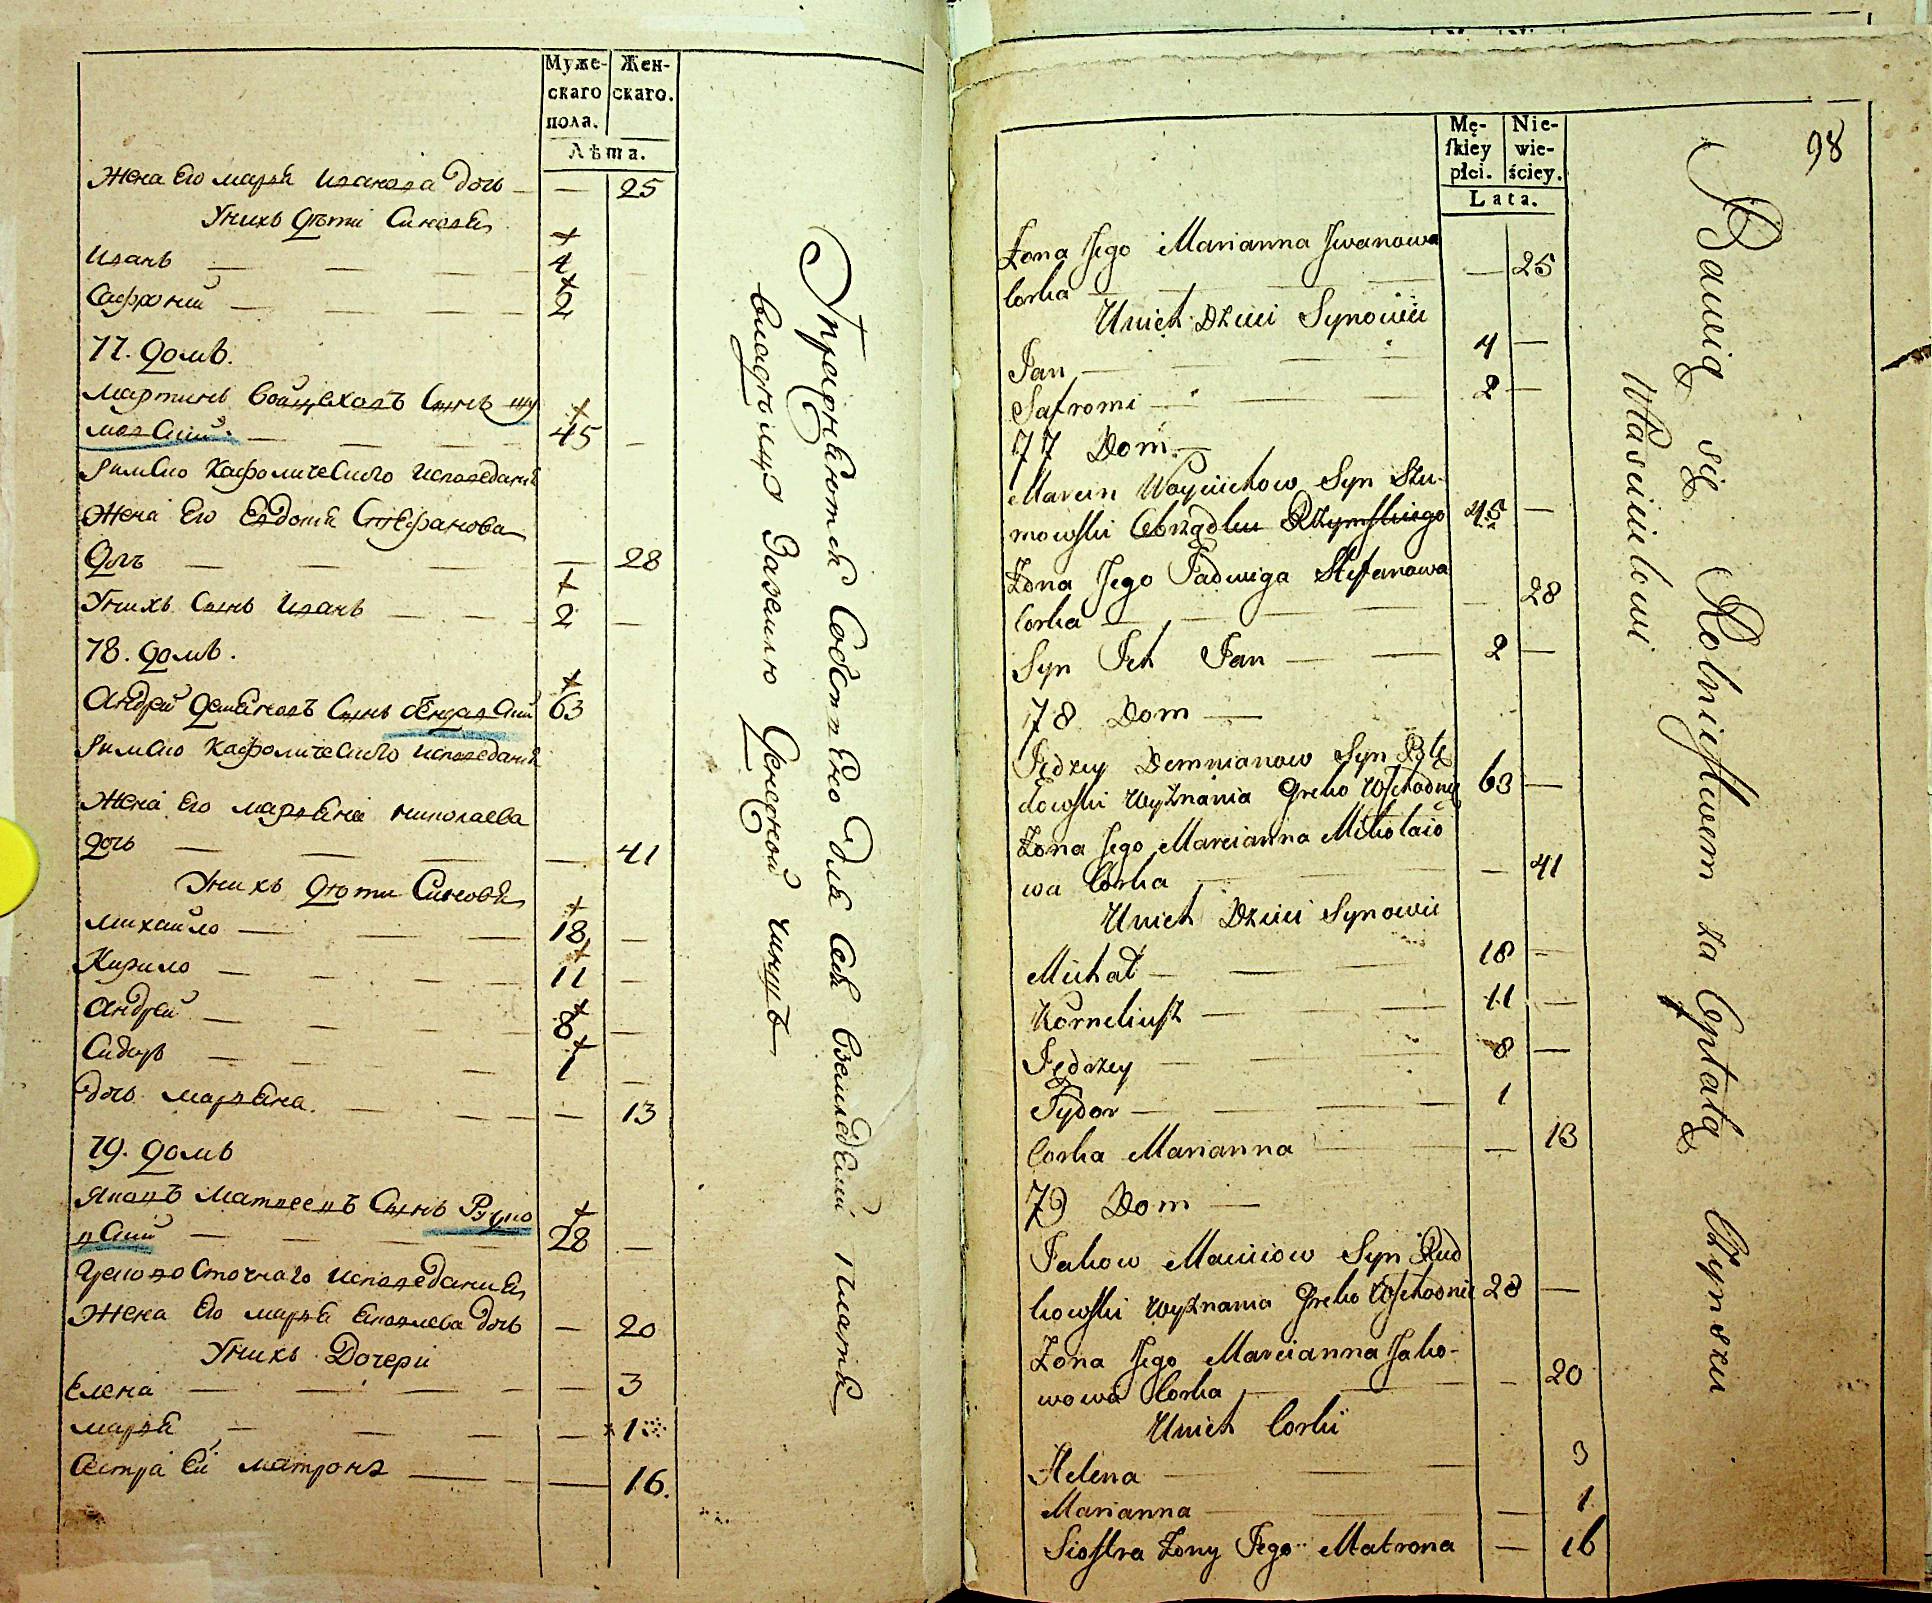 Муже-
скаго
пола.
Жен-
скаго.
Лѣта.
Жена Его марья Иванова дочь — — 25
Унихъ дѣти Синовья
Иванъ — — — — 4
Сафроній — — — — 2
77. домъ.
мартинъ Войцеховъ Сынъ шу
мовский. — — — 45 —
Римско Кафолическаго исповеданія
Жена Его Евдокия Стефанова
дочь — — — — 28
Унихъ Сынъ Иванъ — — — 2 —
78. домъ.
Андрей демяновъ Сынъ бендовский 63
Римско Кафолическаго исповеданія
Жена Его марьяна николаева
дочь — — — — 41
Унихъ дѣти Синовья
михайло — — — 18 —
Кирило — — — — 11 —
андрей — — — — 8 —
Сидоръ — — — — 1 —
дочь марьяна. — — — — 13
79. домъ
яковъ матвеевъ Сынъ Рудко
вский — — — — 28 —
Грековосточнаго исповедания
Жена Его марья яковлева дочь — 20
Унихъ Дочери
Елена — — — — — 3
марья — — — — 1
Сестра Ей матрона — — — 16.
Упражняются Собствено для себя вземледелии платя
владѣльцу заземлю денежной чиншъ
98
Mę-
skiey
płci.
Nie-
wie-
ściey.
Lata.
Żona Jego Marianna Jwanowa
Corka — — — — 25
Unich Dzieci Synowie
Jan — — — 4 —
Safromi — — — 2 —
77 Dom —
Marcin Woyciechow Syn Szu-
mowski Obrządku Rzymskiego 45 —
Żona Jego Jadwiga Stefanowa
Corka — — — — 28
Syn Jch Jan — — 2 —
78 Dom —
Jędrzey Demnianow Syn Bę
dowski Wyznania Greko Wschodnie 63 —
Żona Jego Marcianna Mikołaio
wa Corka — — — — 41
Unich Dzieci Synowie
Michał — — — 18 —
Korneliusz — — — 11 —
Jędrzey — — — 8 —
Sydor — — — 1
Corka Marianna — — 13
79 Dom —
Jakow Maciiow Syn Rud
kowski Wyznania Greko Wschodnie 28 —
Żona Jego Marcianna Jako-
wowa Corka — — — 20
Unich Corki
Helena — — — 3
Marianna — — — 1
Siostra Żony Jego Matrona — 16
Bawią się Rolnictwem za Opłatą Czynszu
Właścicielowi